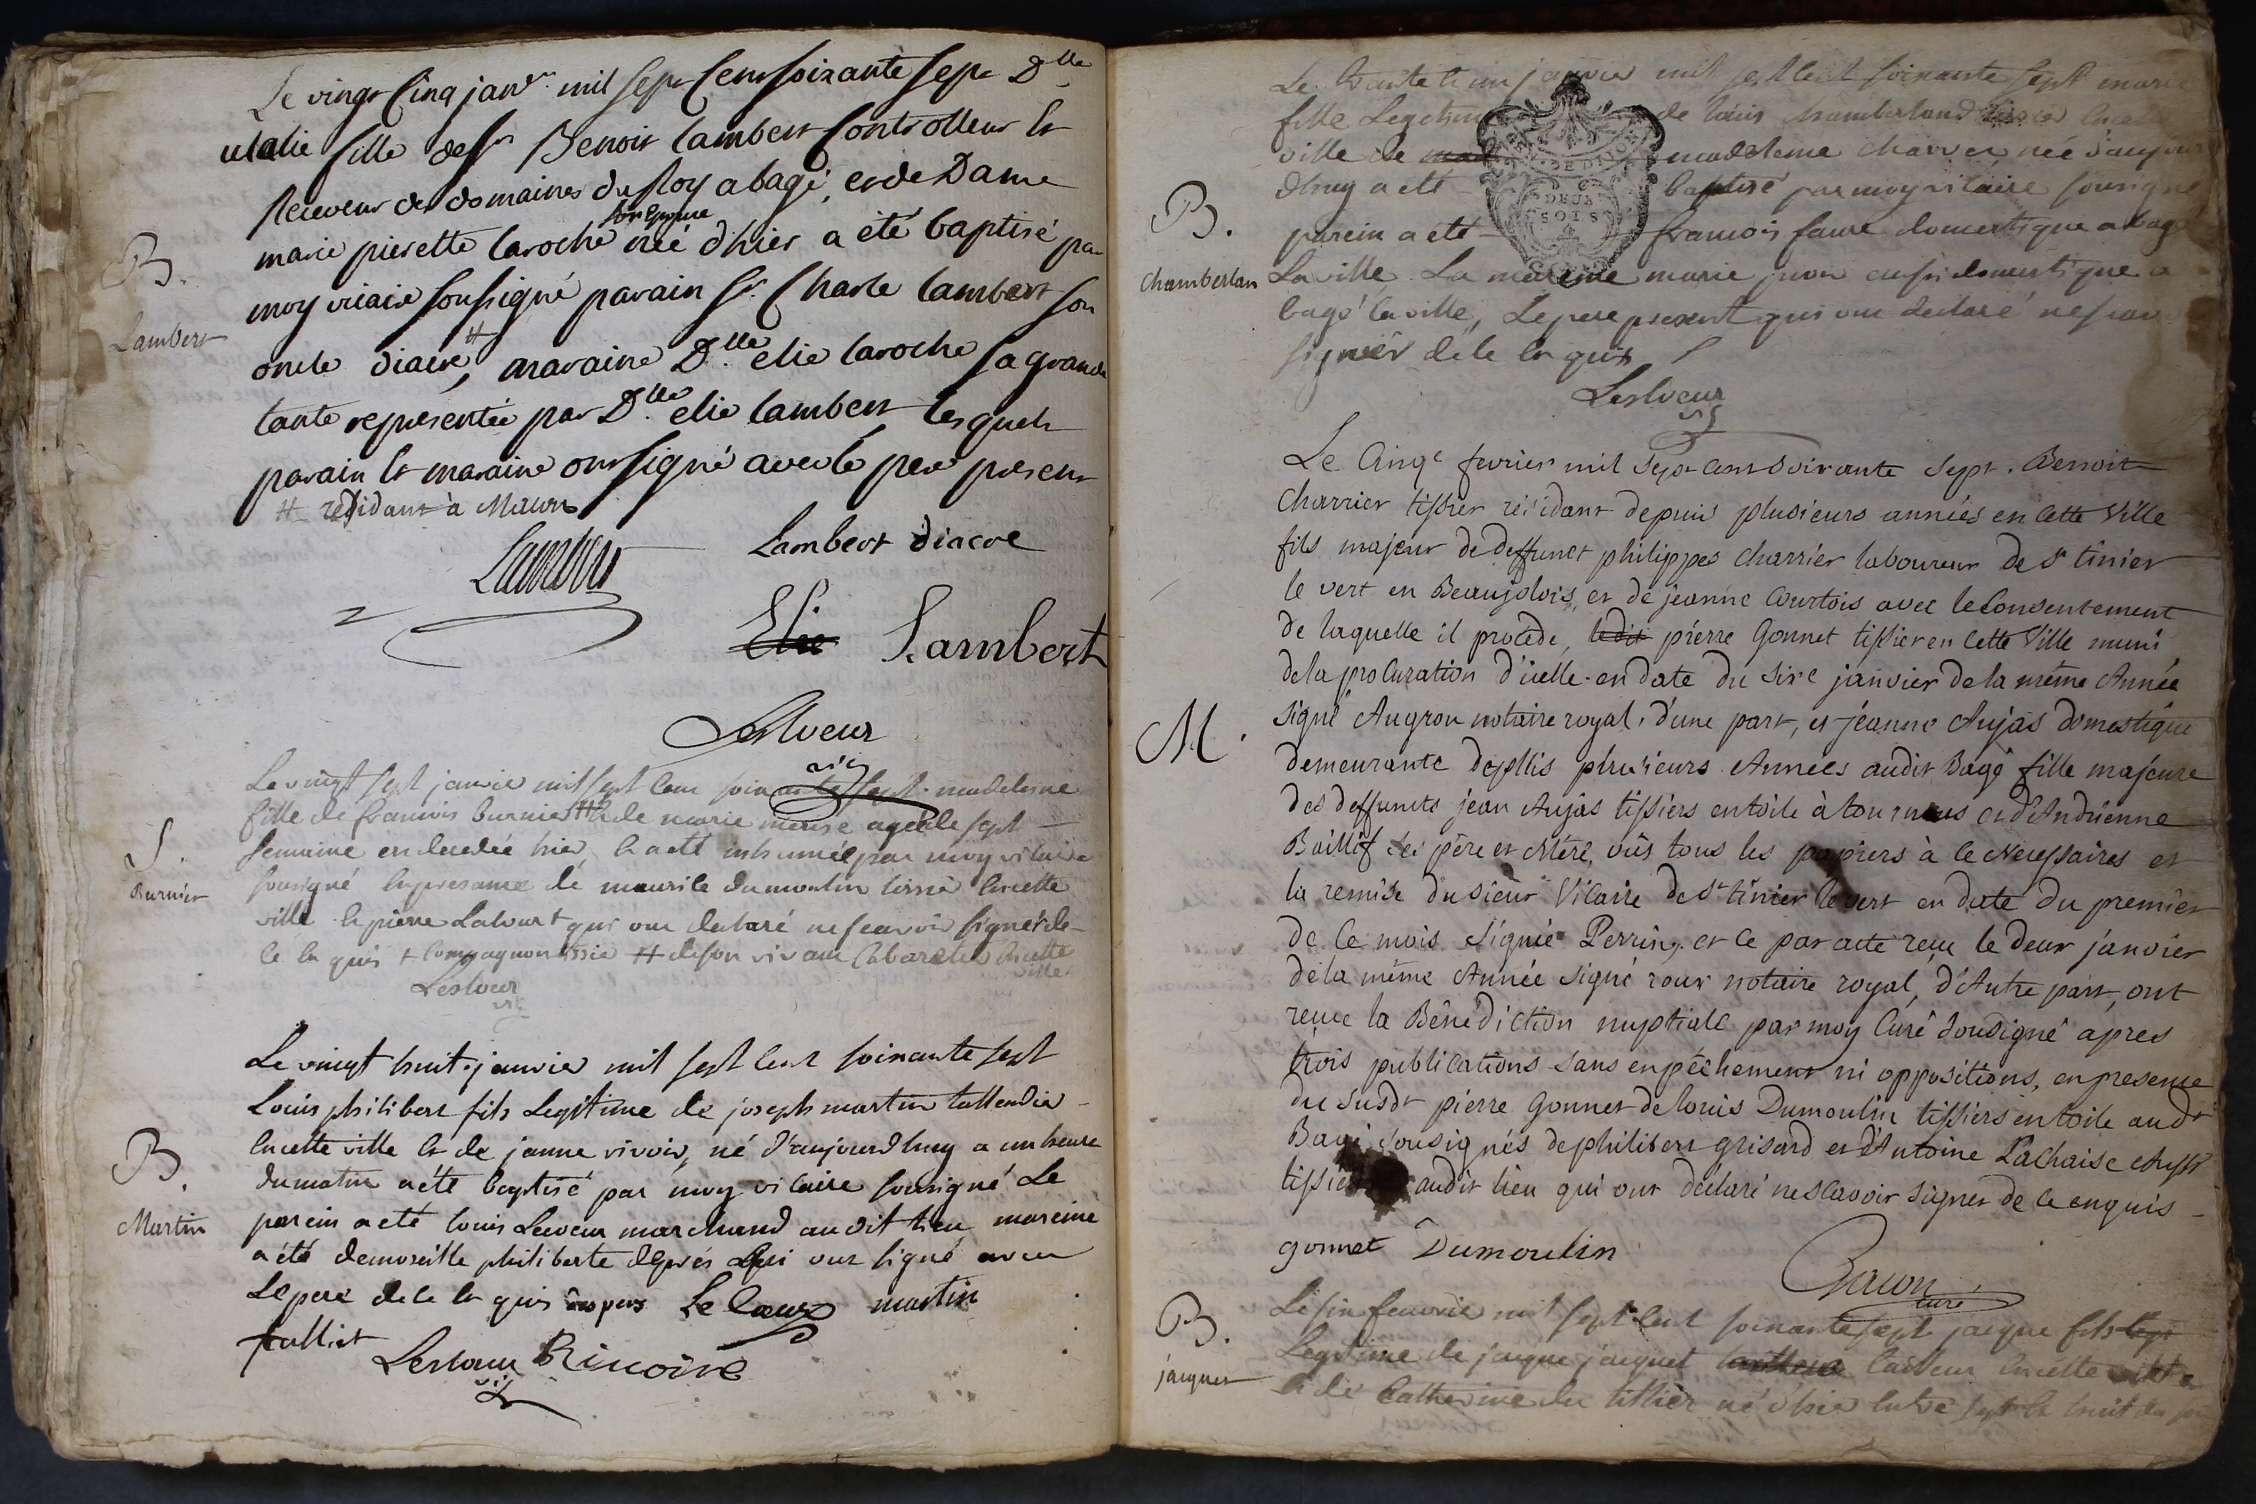 Le vingt Cinq janv.r mil Sept Cent Soixante Sept D.lle
ulalie fille de Sr Benoit Lambert Controlleur et
Receveur des domaines du Roy a bagé, et de Dame
son Epouse
marie pierette laroche née d'hier a été baptisé par
moy vicaire soussigné parain Sr. Charle Lambert son
B.
Lambert
oncle diacre, # maraine D.lle elie laroche sa grande
tante representée par D.lle elie lambert lesquels
parain et maraine ont signé avec le pere present
# residant à Macon
Lambert Lambert diacre
Elie Lambert
Lesloeur
vic
Le vingt sept janvie mil sept cent soixante sept madeleine
fille de francois Burnier # et de marie meuse agée de sept
S.
Burnier
semaine en decedée hier, et a eté inhumée par moy vicaire
sousigné en presance de maurile dumoulin tissie en cette
ville et pierre Lalourt qui ont declaré ne scavoir signer de
ce en quis + compagnon tissie # de son vivant Cabaretier en cette
ville
Lesloeur
vic
Le vingt huit janvie mil sept cent soixante sept
Louis philibert fils Legitime de joseph martin tallendie
en cette ville et de janne vivoir, né d'aujourdhuy a un heure
B.
Martin
du matin a été baptisé par moy vicaire sousigné Le
parein a eté louis Lecoeur marchand au dit lieu mareine
a été demoiselle philiberte qui ont signé avec
Le pere de ce en quis Le Coeur martin
Lesloeur
vic
Le trante et un janvie mil sept cent soixante sept marie
fille Legitime de louis chamberland
ville de madeleine charver née d'aujour
B.
Chamberlan
dhuy a eté baptisé par moy vicaire sousigné
parein a eté francois faure domestique a bagé
La ville La mareine marie aussi domestique a
bagé la ville, Le pere present qui ont declaré ne scavoir
signer de ce en quis
Lesloeur
vic
Le Cinq.e fevrier mil Sept cent Soixante Sept. Benoit
Charrier tissier résidant depuis plusieurs années en cette Ville
fils majeur de deffunct philippes Charrier laboureur de St tinier
le vert en Beaujolois, et de jeanne Courtois avec le Consentement
de laquelle il procede, ledit pierre Gonnet tissier en cette Ville muni
de la procuration d'icelle en date du sixe janvier de la même Année
M.
signé Augron notaire royal, d'une part, et jeanne Aujas Domestique
demeurante depuis plusieurs Années audit Bagé fille majeure
des deffuncts jean Aujas tissiers en toile à tournus et d'Andrienne
Baillif ses père et Mère, vûs tous les papiers à ce Necessaires et
la remise du sieur Vicaire de St tinier le vert en date du premier
de ce mois signé Perrin, et ce par acte reçu le deux janvier
de la même Année signé roux notaire royal, d'Autre part, ont
reçue la Bénédiction nuptiale par moy Curé Sousigné apres
trois publications sans enpêchement ni oppositions, en presence
du susdt pierre Gonnet de louis Dumoulin tissiers en toile audt
Bagé sousignés de philibert Grisard et d'Antoine Lachaise Aussi
tissiers audit lieu qui ont déclaré ne scavoir signer de ce enquis
gonnet Dumoulin
curé
B.
jacquet
Le six feuvrie mil sept cent soixante sept jacque fils
Legitime de jacque jacquet, tailleur en cette ville
et de Catherine du tillier né d'hier entre sept et huit du